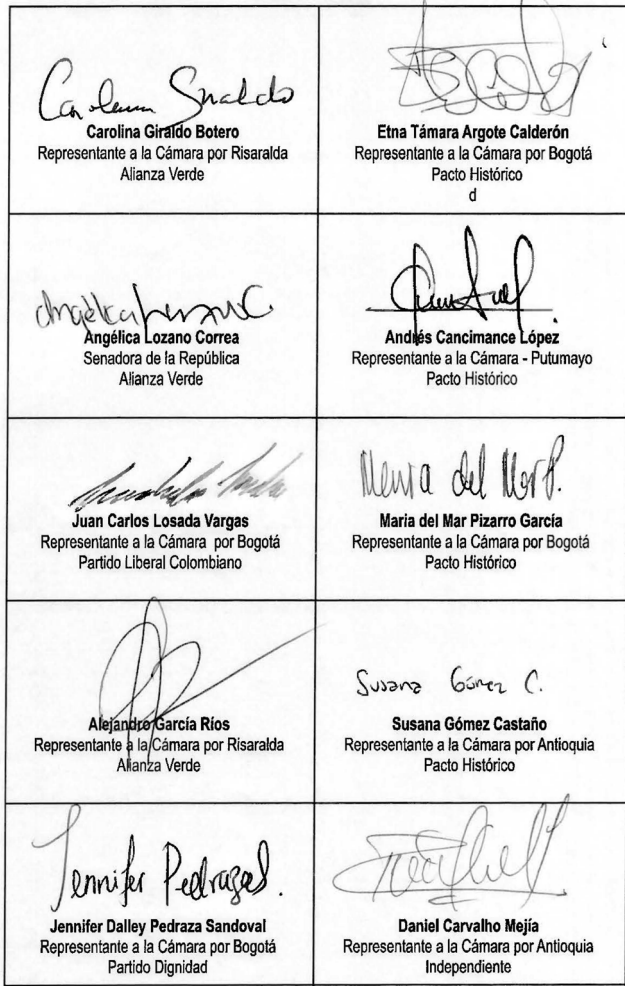 Carolina Giraldo
Carolina Giraldo Botero
Representante a la Cámara por Risaralda
Alianza Verde
Etna Támara Argote Calderón
Representante a la Cámara por Bogotá
Pacto Histórico
d
Angélica Lozano C.
Angélica Lozano Correa
Senadora de la República
Alianza Verde
Andrés Cancimance López
Representante a la Cámara - Putumayo
Pacto Histórico
Juan Carlos Losada Vargas
Representante a la Cámara por Bogotá
Partido Liberal Colombiano
Maria del Mar P.
Maria del Mar Pizarro García
Representante a la Cámara por Bogotá
Pacto Histórico
Alejandro García Ríos
Representante a la Cámara por Risaralda
Alianza Verde
Susana Gómez C.
Susana Gómez Castaño
Representante a la Cámara por Antioquia
Pacto Histórico
Jennifer Pedraza S.
Jennifer Dalley Pedraza Sandoval
Representante a la Cámara por Bogotá
Partido Dignidad
Daniel Carvalho Mejía
Representante a la Cámara por Antioquia
Independiente